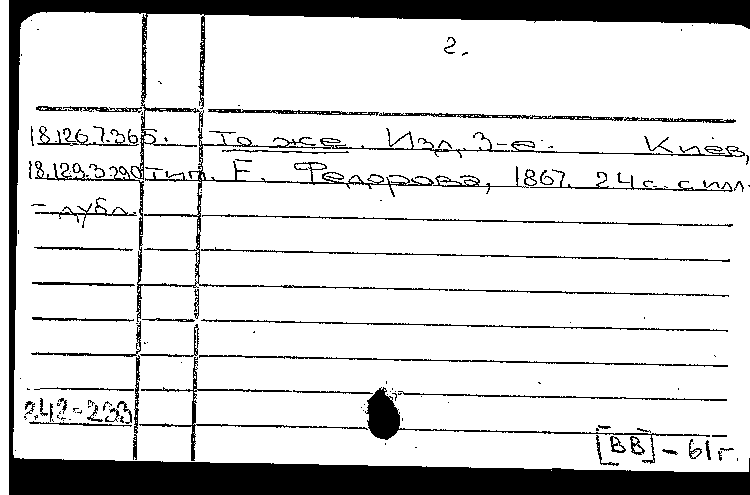 2.
18.126.7.365. То же. Изд. 3-е. Киев,
18.129.3.290 тип. Е. Федорова, 1867. 24 с. с илл.
- дубл.
242-233
[ВВ] - 61 г.